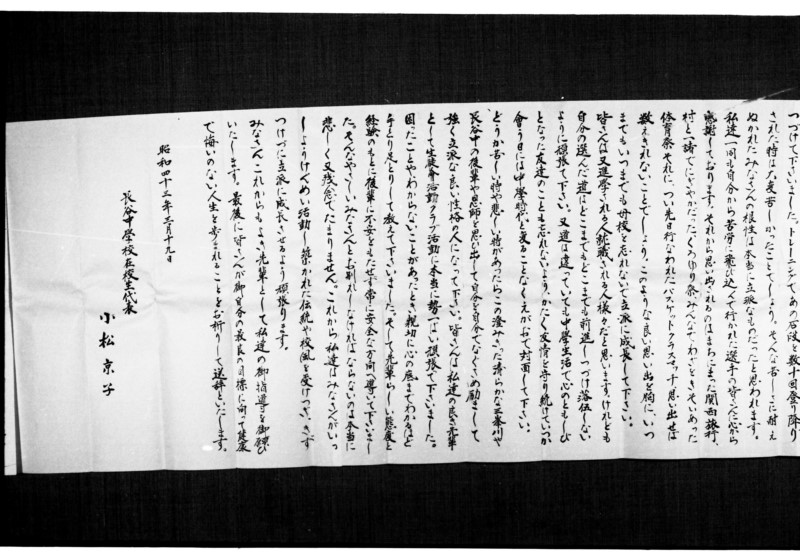 つづけて下いました。トレーニングであの石段を数十回登り降り
された時は大変苦しかったことでしょう。そんな苦しさに耐え
ぬかれたみなさんの根性は本当に立派なものだったと思われます。
私達一同も自分から苦労に飛び込んで行かれた選手の皆さんに心から
感謝しております。それから思い出されるのはまちにまった関西旅行、
村と一諸でにぎやかだったくろゆり祭、みんなでわざときそいあった
体育祭、それに、つい先日行なわれたバスケットクラスマッチ 思い出せば
数えきれないことでしょう。このような良い思い出を胸に、いつ
までもいつまでも母校を忘れないで立派に成長して下さい。
皆さんは又進学される人、就職される人様々だと思います。けれども
自分の選んだ道はどこまでもどこまでも前進しつづけ落伍しない
ように頑張って下さい。又道は違っていても中學生活で心のともしび
となった友達のことも忘れないよう、かたく友情を守り続けていつか
會う日には中學時代と変ることなくえがおで対面して下さい。
どうか苦しい時や悲しい時があったらこの澄みきった清らかな三峯川や
長谷中の後輩や恩師を思い出して自分を自分でなぐさめ励まして
強く立派な良い性格の人になって下さい。皆さんは私達の良き先輩
として生徒會活動クラブ活動に本当に勢いっぱい頑張て下さいました。
困ったことやわからないことがあったとき親切に心の底までわかるほど
手とり足とりして教えて下さいました。そして先輩らしい態度と
経験のもとに後輩に不安をもたせず常に安全な方向へ導いて下さいまし
た。そんなやさしいみなさんとお別れしなければならないのは本当に
悲しく又残念でたまりません。これから私達はみなさんがいっ
しょうけんめい活動し築かれた伝統や校風を受けつぎ、きず
つけずに立派に成長させるよう頑張ります。
みなさん、これからもよき先輩として私達の御指導を御願い
いたします。最後に皆さんが御自分の最良の目標に向って健康
で悔いのない人生を歩まれることをお祈りして送辞といたします。
昭和四十三年三月十九日
長谷中學校在校生代表
小松京子